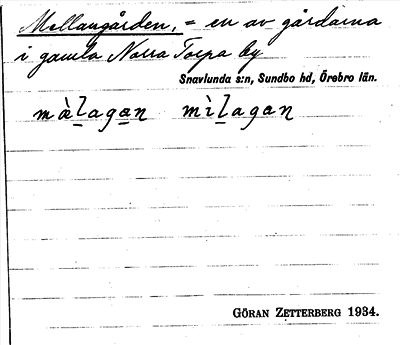 Mellangården, = en av gårdarna
i gamla Norra Torpa by
Snavlunda s:n, Sundbo hd, Örebro län.
mὰlagan mìlagan
GÖRAN ZETTERBERG 1934.